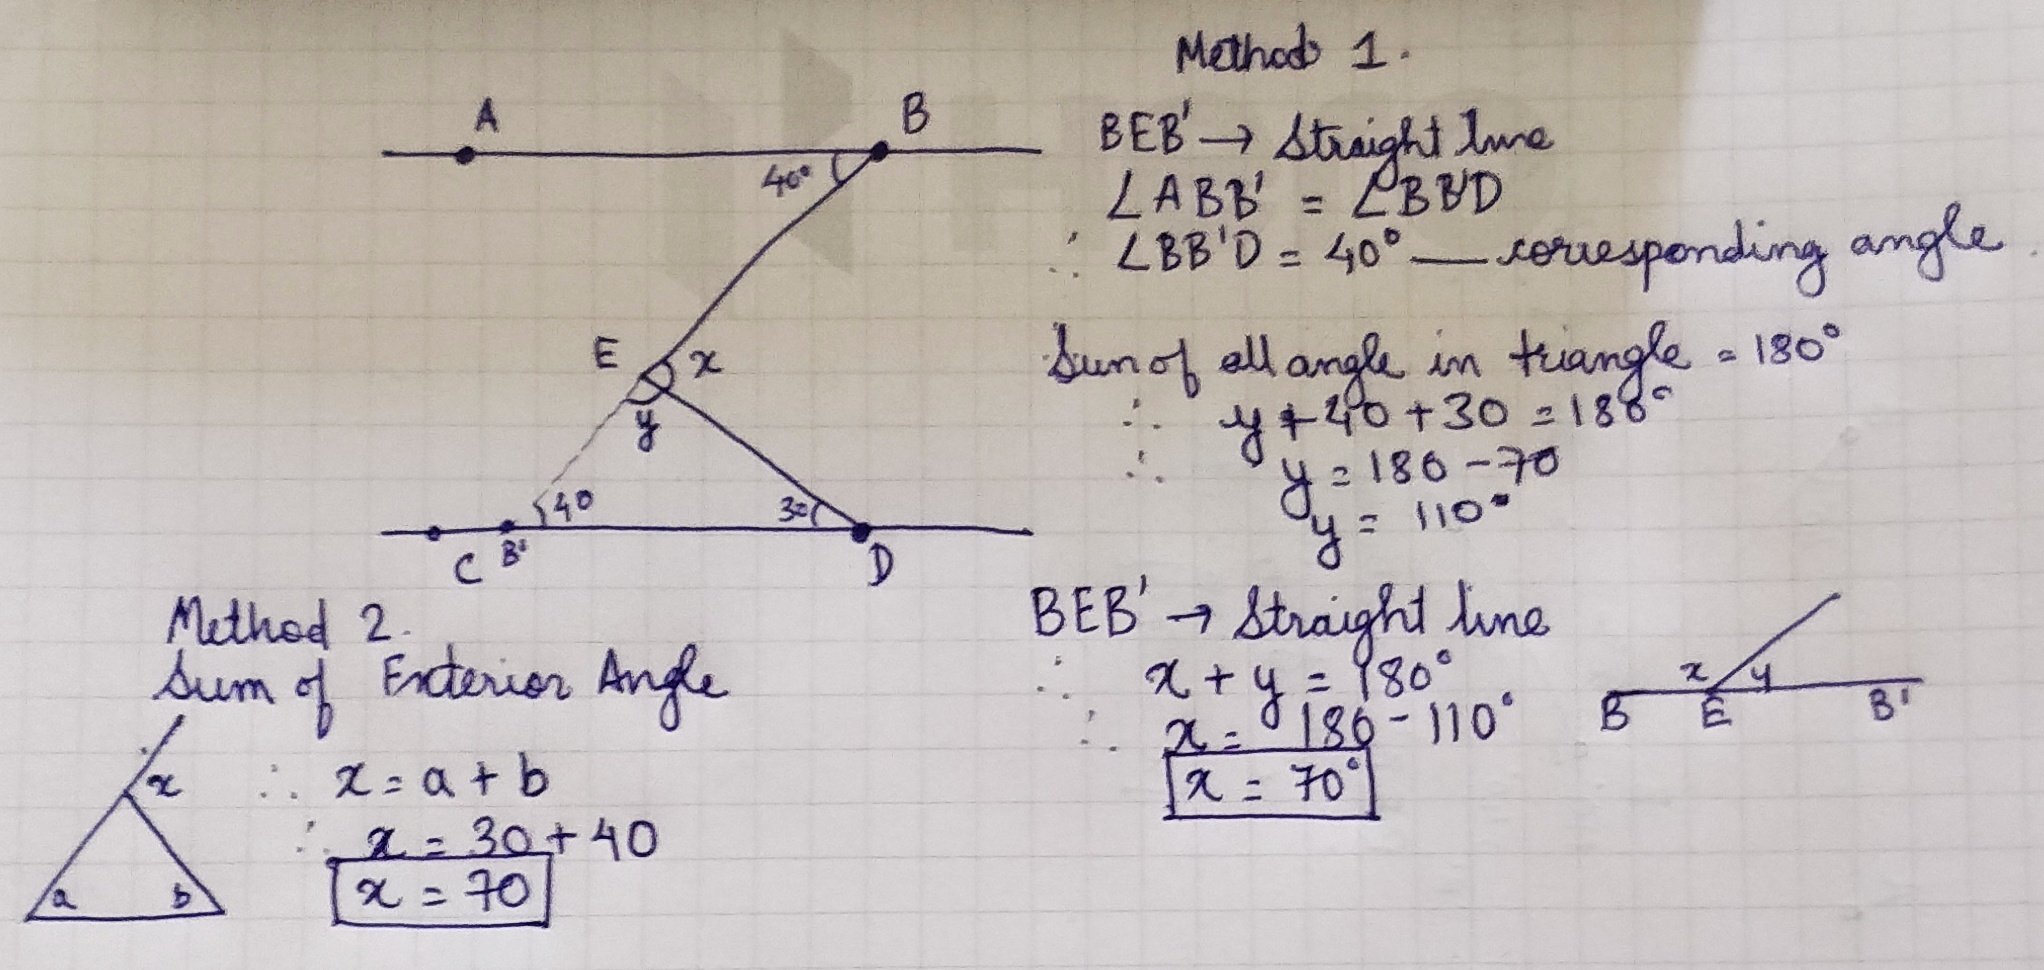 Method 1.
A
B
40°
E
x
y
40
30
C
B'
D
BEB' → Straight line
∠ABB' = ∠BB'D
∴ ∠BB'D = 40° — corresponding angle
Sum of all angle in triangle = 180°
∴ y + 40 + 30 = 180°
∴ y = 180 - 70
y = 110°
BEB' → Straight line
∴ x + y = 180°
∴ x = 180 - 110°
x = 70°
x
y
B
E
B'
Method 2.
Sum of Exterior Angle
x
a
b
∴ x = a + b
∴ x = 30 + 40
x = 70